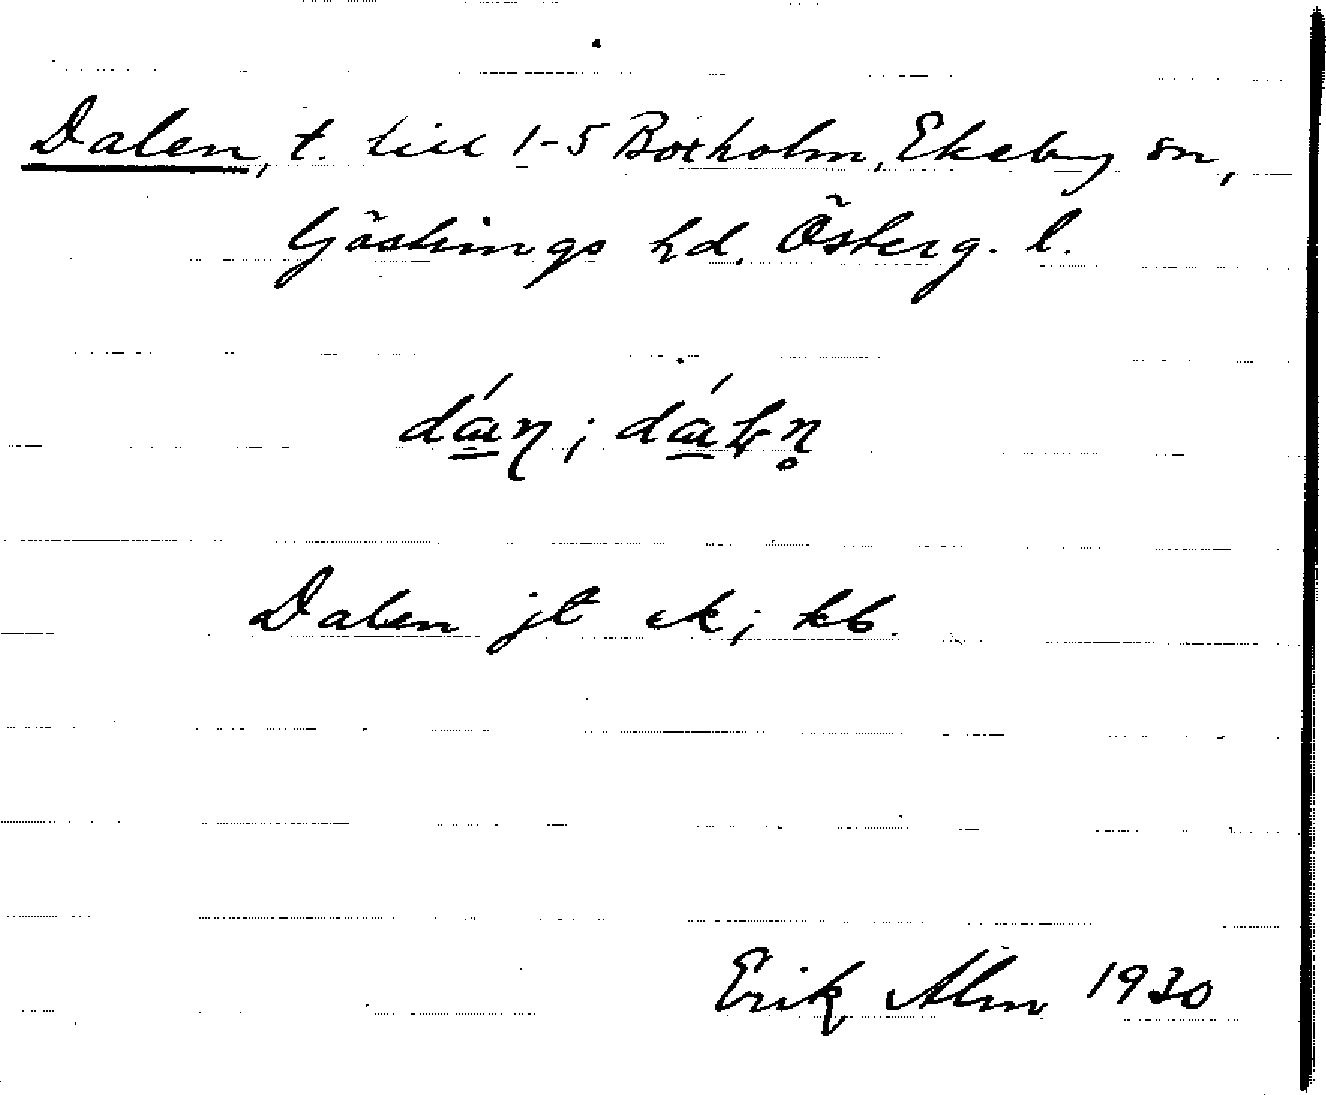 Dalen, t. till 1-5 Boxholm, Ekeby sn,
Göstrings hd. Österg. l.
Dalen jt ek; kb.
Erik Alm 1930